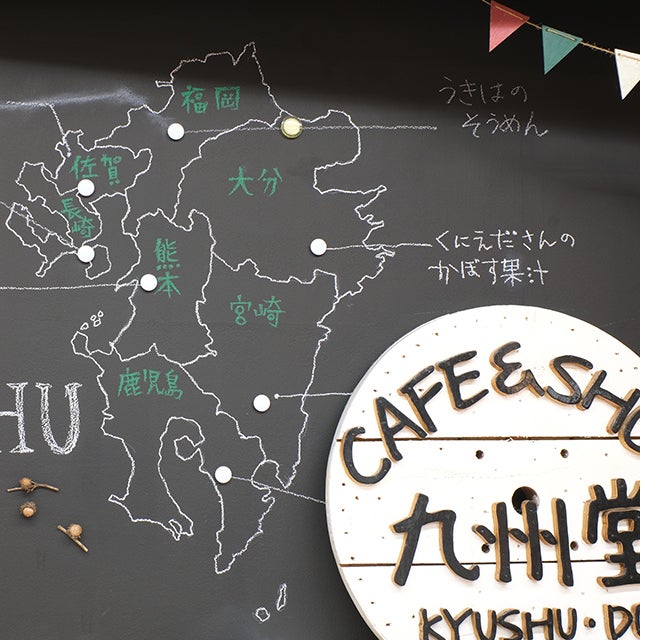 福岡
うきはの
そうめん
佐賀
大分
長崎
くにえださんの
かぼす果汁
熊本
宮崎
鹿児島
HU
CAFE&SHO
九州堂
KYUSHU・DO